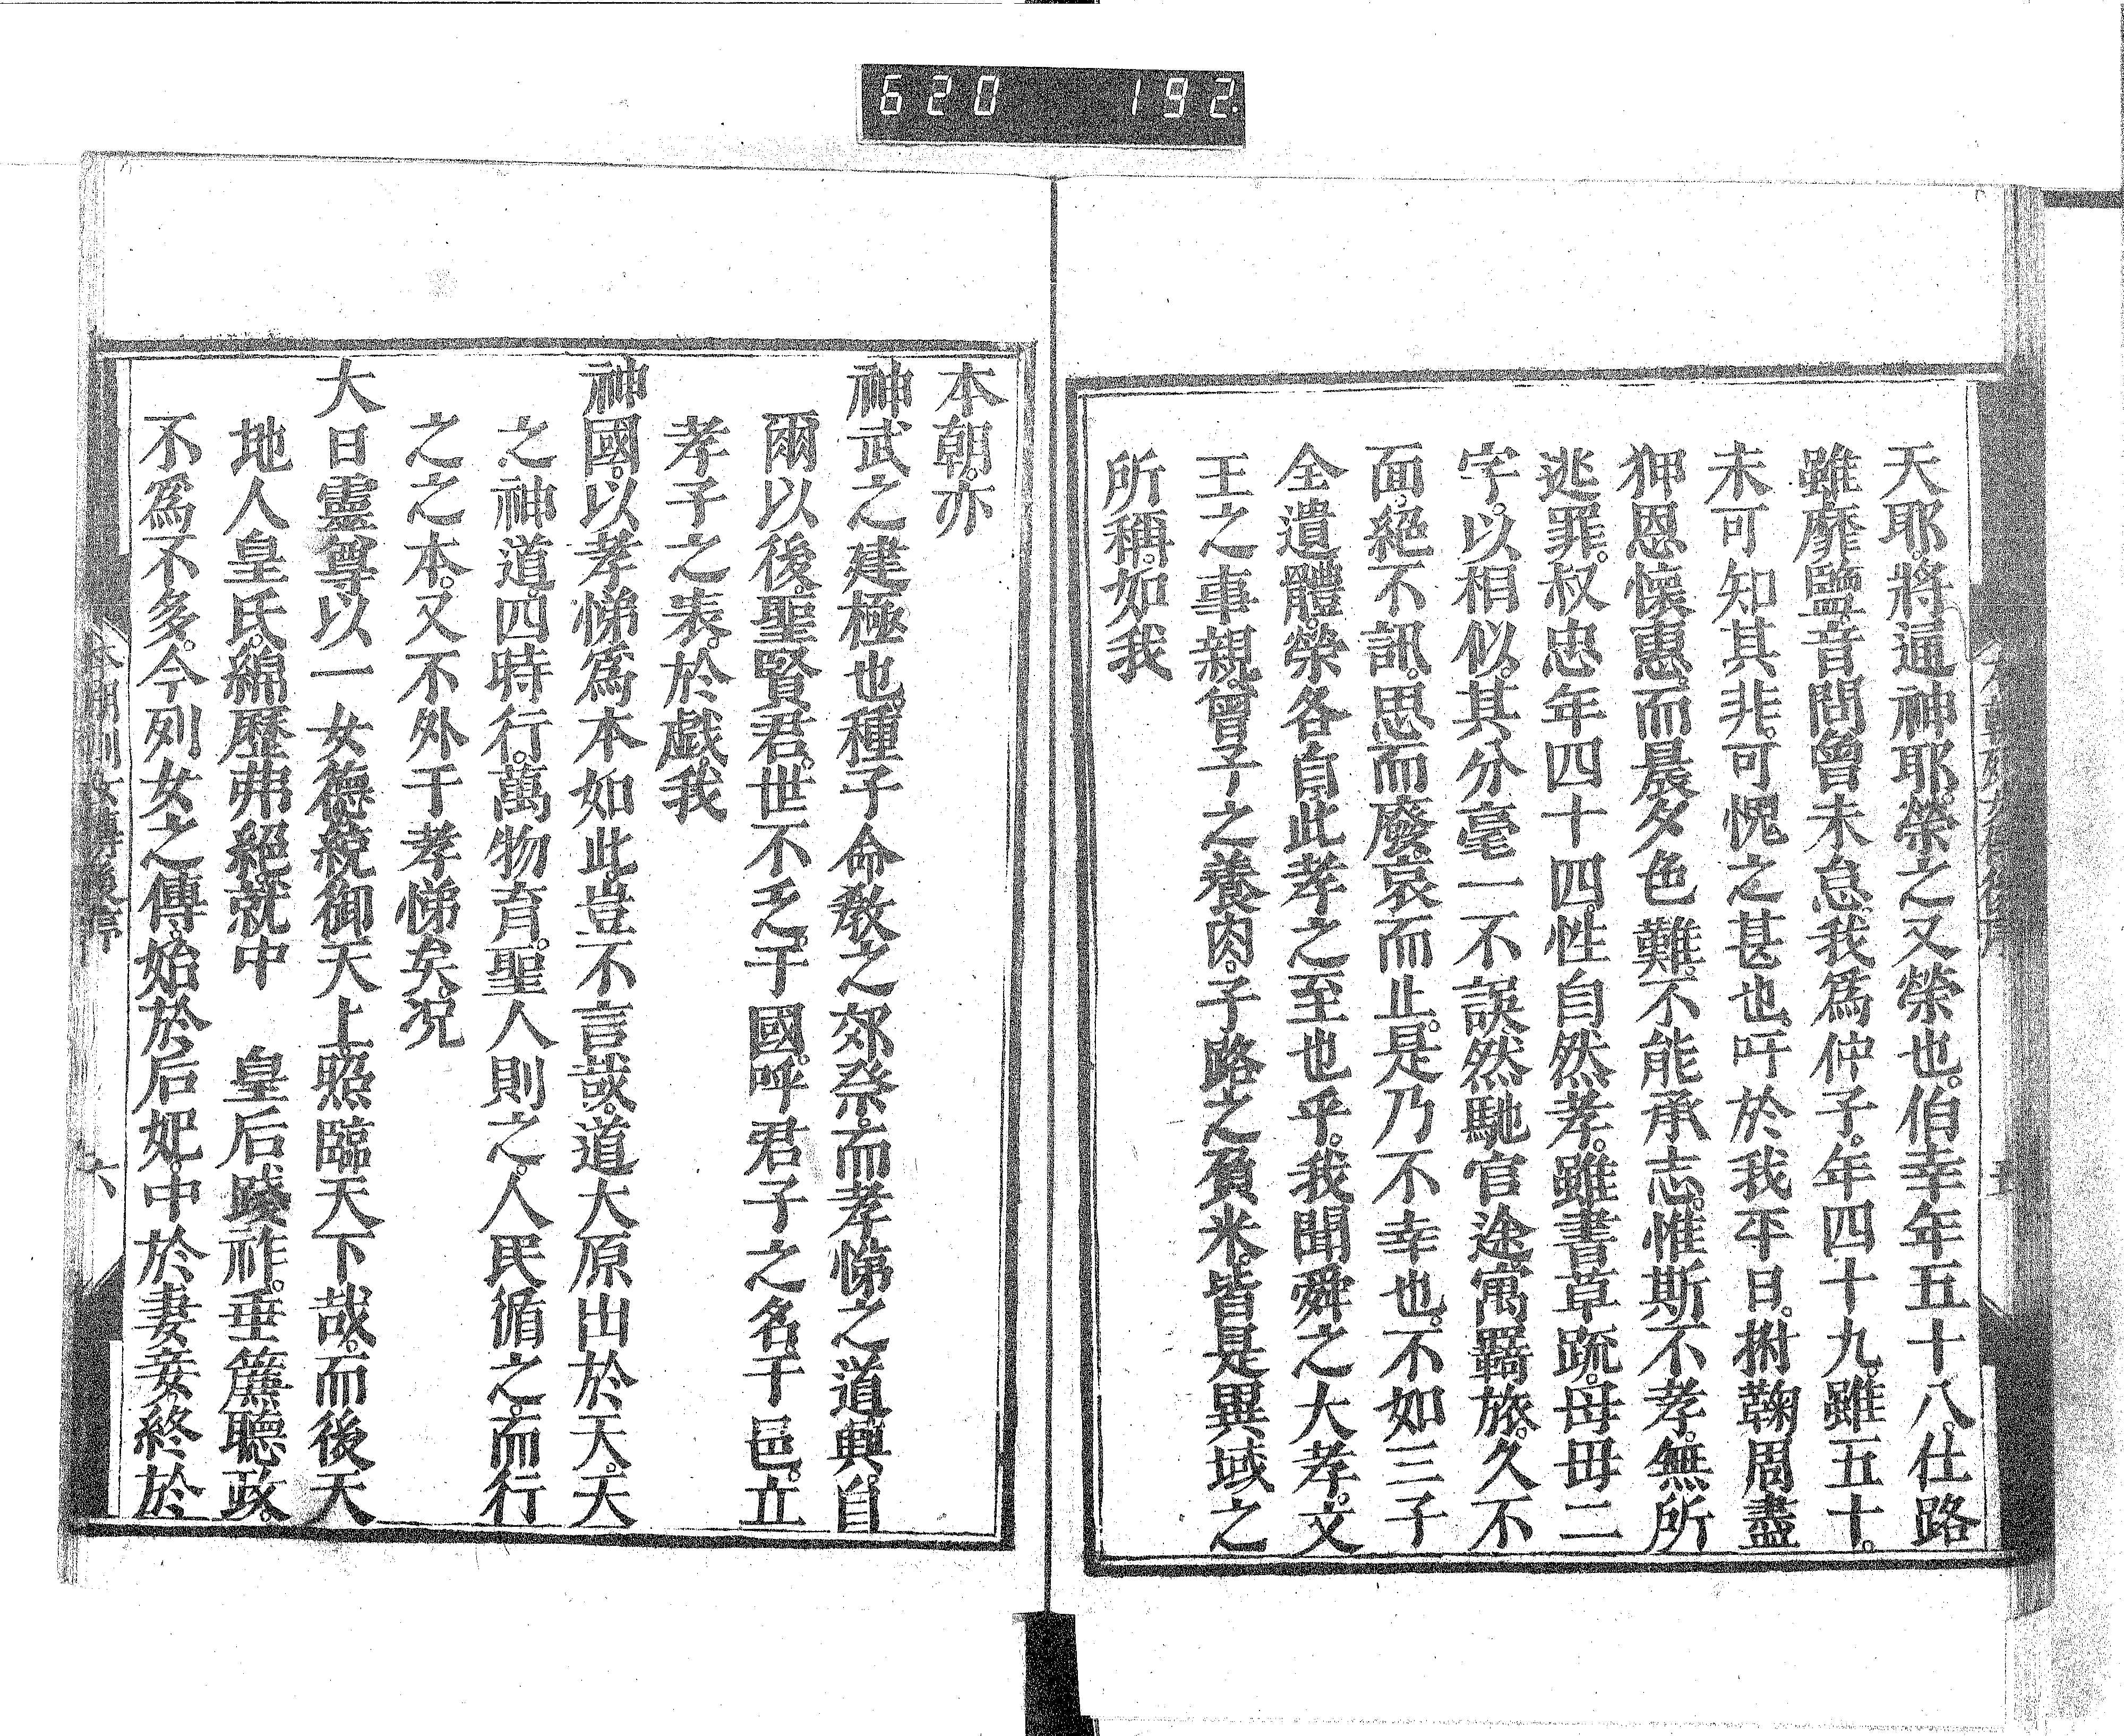 620 192.
天耶。將逼神耶。榮之又榮也。伯幸年五十八。仕路
雖靡盬。音問曾未怠。我爲仲子。年四十九。雖五十。
未可知其非。可愧之甚也。吁於我平日。拊鞠周盡
狎恩懷惠。而晨夕色難。不能承志。惟斯不孝。無所
逃罪。叔忠年四十四。性自然孝。雖書草疏。母毋二
字。以相似。其分毫一不誤。然馳官途寓羇旅。久不
面。絕不訊。思而廢。哀而止。是乃不幸也。不如三子
全遺體。榮各自。此孝之至也乎。我聞舜之大孝。文
王之事親。曾子之養肉。子路之負米。皆是異域之
所稱。如我
本朝。亦
神武之建極也。種子命敎之郊祭。而孝悌之道興。自
爾以後。聖賢君。世不乏。于國。呼君子之名。于邑。立
孝子之表。於戲。我
神國。以孝悌爲本如此。豈不言哉。道大原出於天。天
之神道。四時行。萬物育。聖人則之。人民循之。而行
之之本。又不外于孝悌矣。況
大日靈尊。以一女德統御。天上照臨天下哉。而後天
地人皇氏。綿歷弗絕。就中 皇后踐祚。垂簾聽政。
不爲不多。今列女之傳。始於后妃。中於妻妾。終於
六